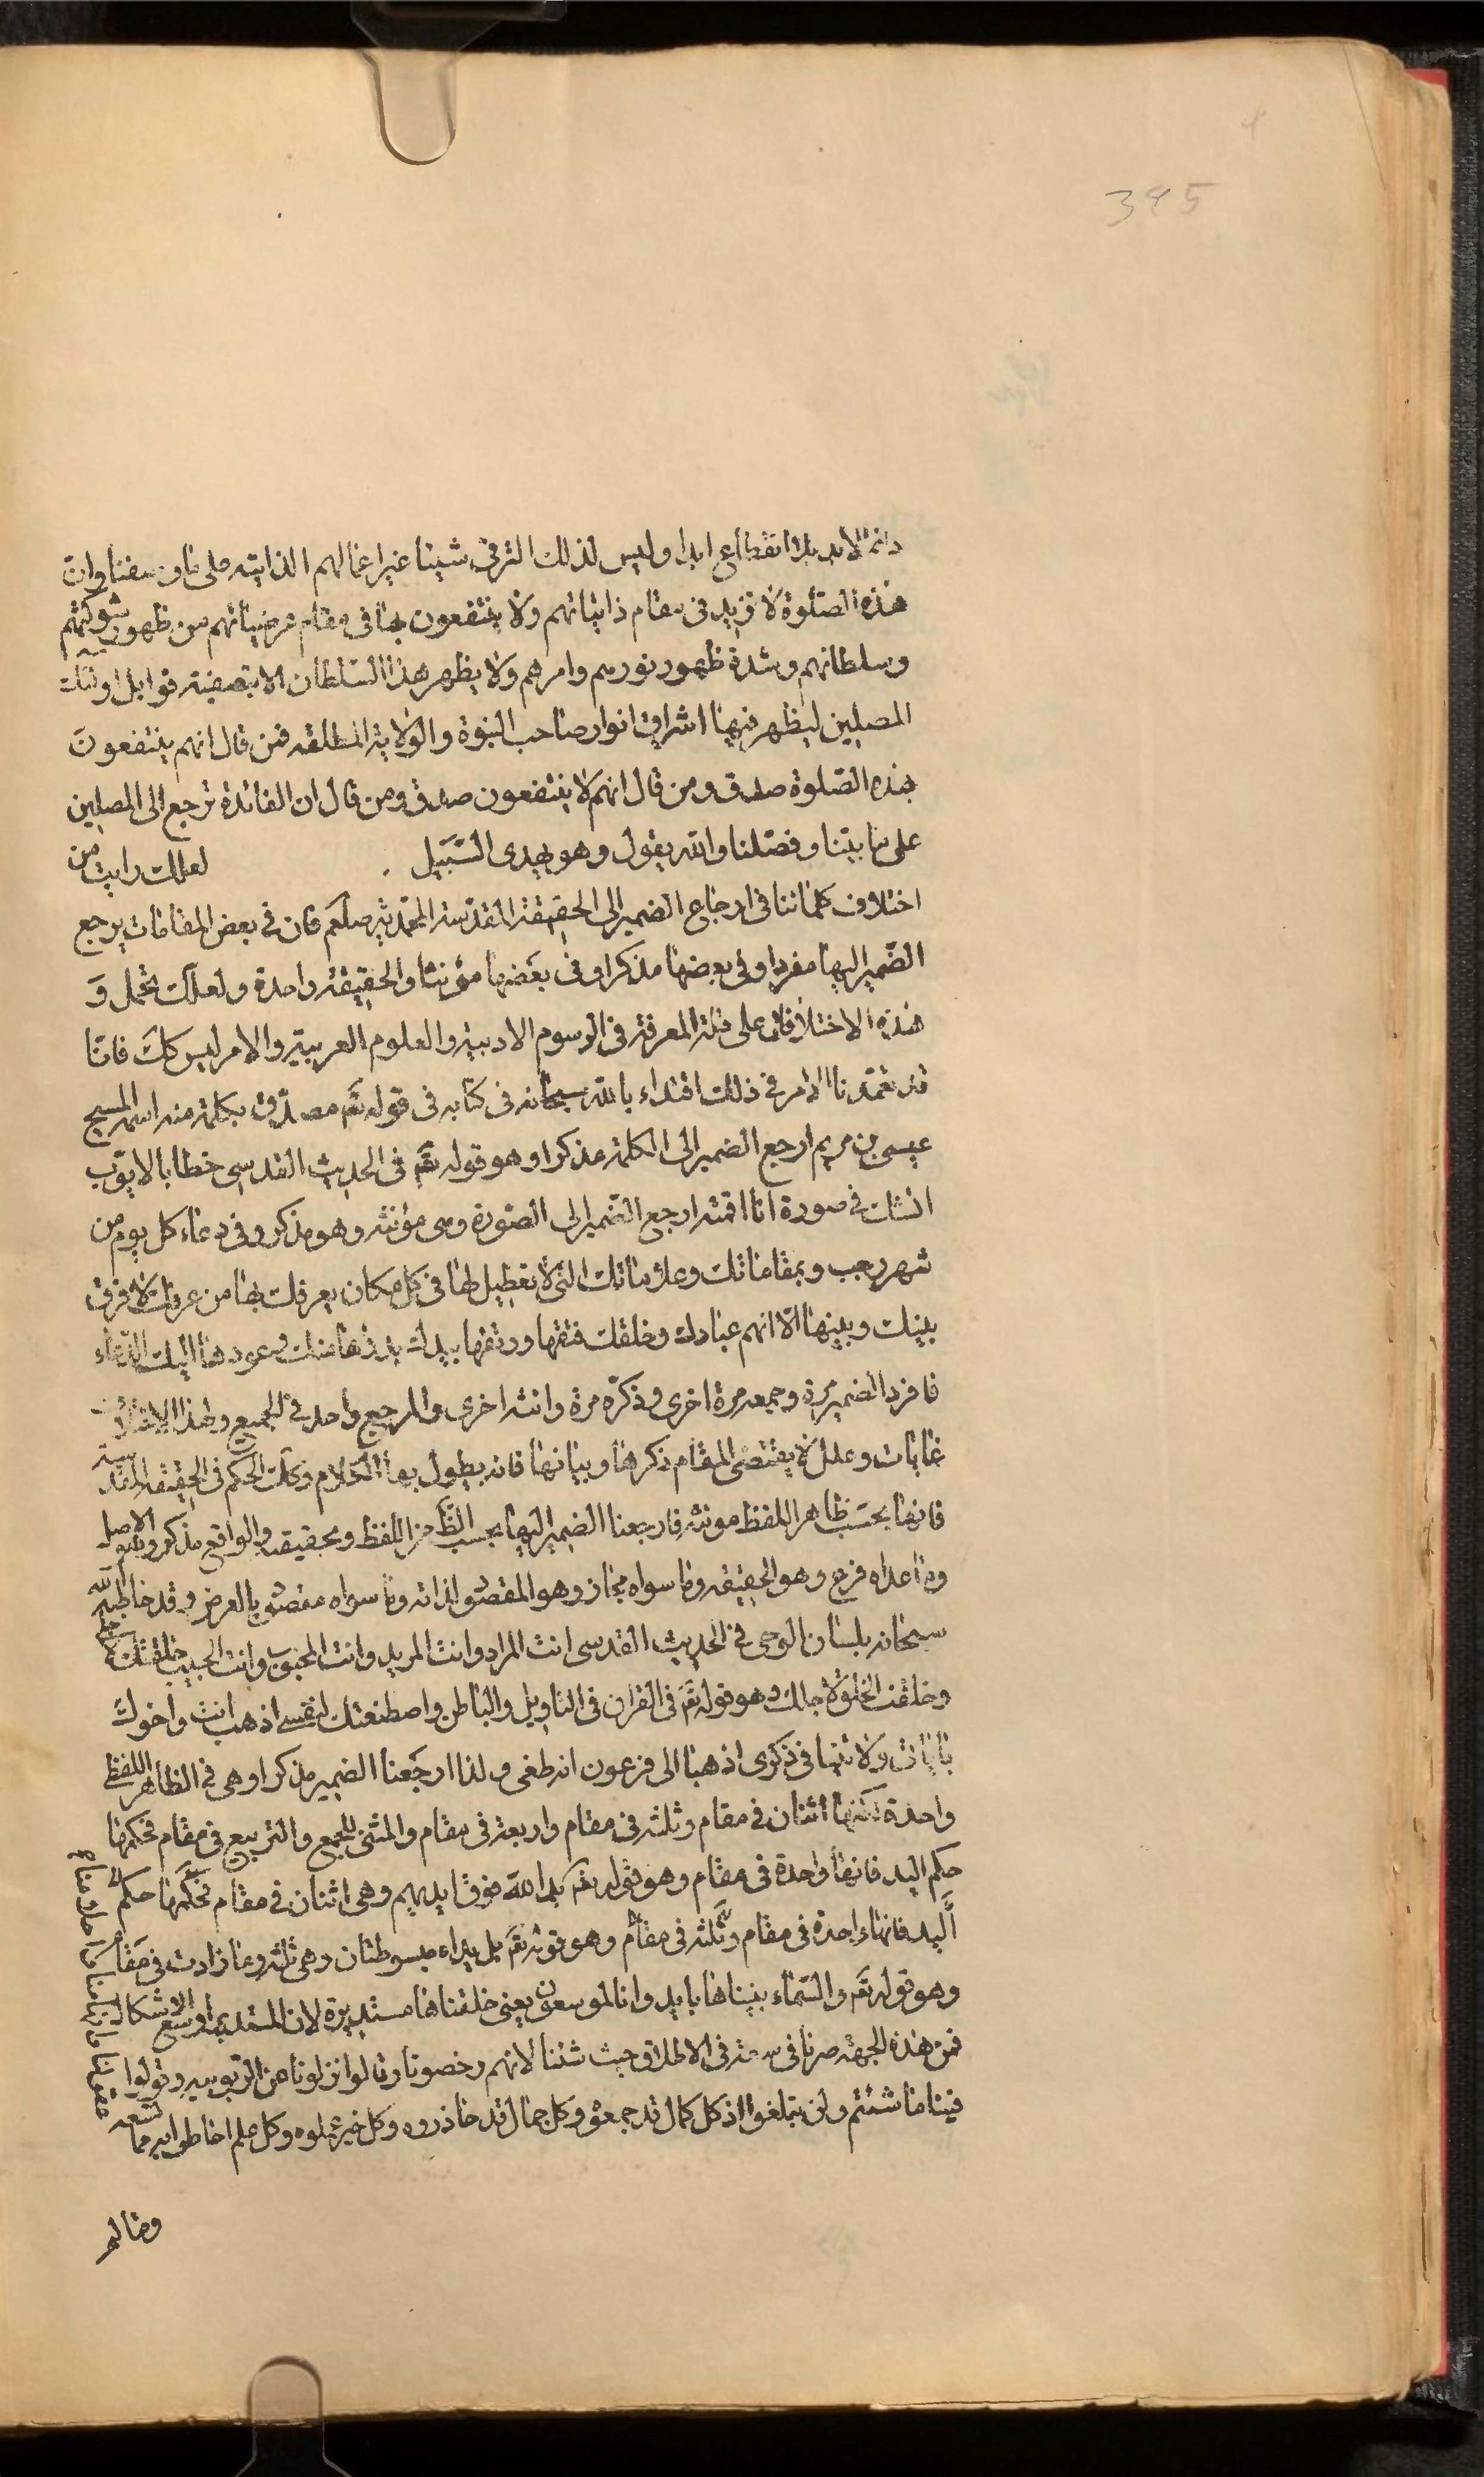 395
دائما لابد بلا انقطاع ابدا وليس لذلك الترقى شيئا غير اعمالهم الذاتية على ما وصفنا وان
هذه الصلوة لا تزيد فى مقام ذاتياتهم ولا ينتفعون بها فى مقام عرضياتهم من ظهور شوكتهم
وسلطانهم وشدة ظهور نورهم وامرهم ولا يظهر هذا السلطان الا بتصفية قوابل اولئك
المصلين ليظهر فيها اشراق انوار صاحب النبوة والولاية المطلقه فمن قال انهم ينتفعون
بهذه الصلوة صدق ومن قال انهم لا ينتفعون صدق ومن قال ان الفائدة ترجع الى المصلين
على ما بيّنا وفصّلنا والله يقول وهو يهدى السّبيل لعلك رايت من
اختلاف كلماتنا فى ارجاع الضمير الى الحقيقة المقدّسة المحمّدية صلعم فان فى بعض المقامات يرجع
الضّمير اليها مفردا وفى بعضها مذكرا وفى بعضها مؤنثا والحقيقة واحدة ولعلك تحمل
هذه الاختلافات على قلة المعرفة فى الرسوم الادبية والعلوم العربية والامر ليس كك فانا
قد تعمّدنا الامر فى ذلك اقتداء بالله سبحانه فى كتابه فى قوله تع مصدّق بكلمة منه اسمه المسيح
عيسى بن مريم ارجع الضمير الى الكلمة مذكرا وهو قوله تع فى الحديث القدسى خطابا لايوب
انت فى صورة انا اقمته ارجع الضمير الى الصورة وهى مؤنثه وهو مذكر وفى دعاء كل يوم من
شهر رجب وبمقاماتك وعلاماتك التى لا تعطيل لها فى كل مكان يعرفك بها من عرفك لا فرق
بينك وبينها الّا انهم عبادك وخلقك فتقها ورتقها بيدك بدؤها منك وعودها اليك الدّعاء
فافرد الضمير مرة وجمعه مرة اخرى وذكّره مرة وانثه اخرى والمرجع واحد فى الجميع ولهذا الاختلاف
غايات وعلل لا يقتضى المقام ذكرها وبيانها فانه يطول بها الكلام وكك الحكم فى الحقيقة المقدسة
فانها بحسب ظاهر اللفظ مونثه فارجعنا الضمير اليها بحسب الظاهر من اللفظ وبحقيقه والواقع مذكر وهو الاصل
وما عداه فرع وهو الحقيقه وما سواه مجاز وهو المقصود لذاته وما سواه مقصود بالعرض وقد خاطبه الله
سبحانه بلسان الوحى فى الحديث القدسى انت المراد وانت المريد وانت المحبوب وانت الحبيب خلقتك لاجلى
وخلقت الخلق لاجلك وهو قوله تع فى القران فى التاويل والباطن واصطنعتك لنفسى اذهب انت واخوك
باياتى ولا تنيا فى ذكرى اذهبا الى فرعون انه طغى ولذا ارجعنا الضمير مذكرا وهى فى الظاهر اللفظ
واحدة لكنها اثنان فى مقام وثلثه فى مقام واربعة فى مقام والمثنى للجمع والتربيع فى مقام فحكمها
حكم اليد فانها واحدة فى مقام وهو قوله تع يد الله فوق ايديهم وهى اثنان فى مقام فحكمها حكم
اليد فانها واحدة فى مقام وثلثه فى مقام وهو قوله تع بل يداه مبسوطتان وهى ثلثه وما زادت فى مقام
وهو قوله تع والسّماء بنيناها بايد وانا لموسعون يعنى خلقناها مستديرة لان المستدير اوسع الاشكال
فمن هذه الجهة صرنا فى سعة فى الاطلاق حيث شئنا لانهم رخصونا وقالوا نزلونا عن الربوبيه وقولوا
فينا ما شئتم ولن تبلغوا اذ كل كمال قد جمعوه وكل جمال قد حاذروه وكل خير عملوه وكل علم احاطوا به مما
ومالم